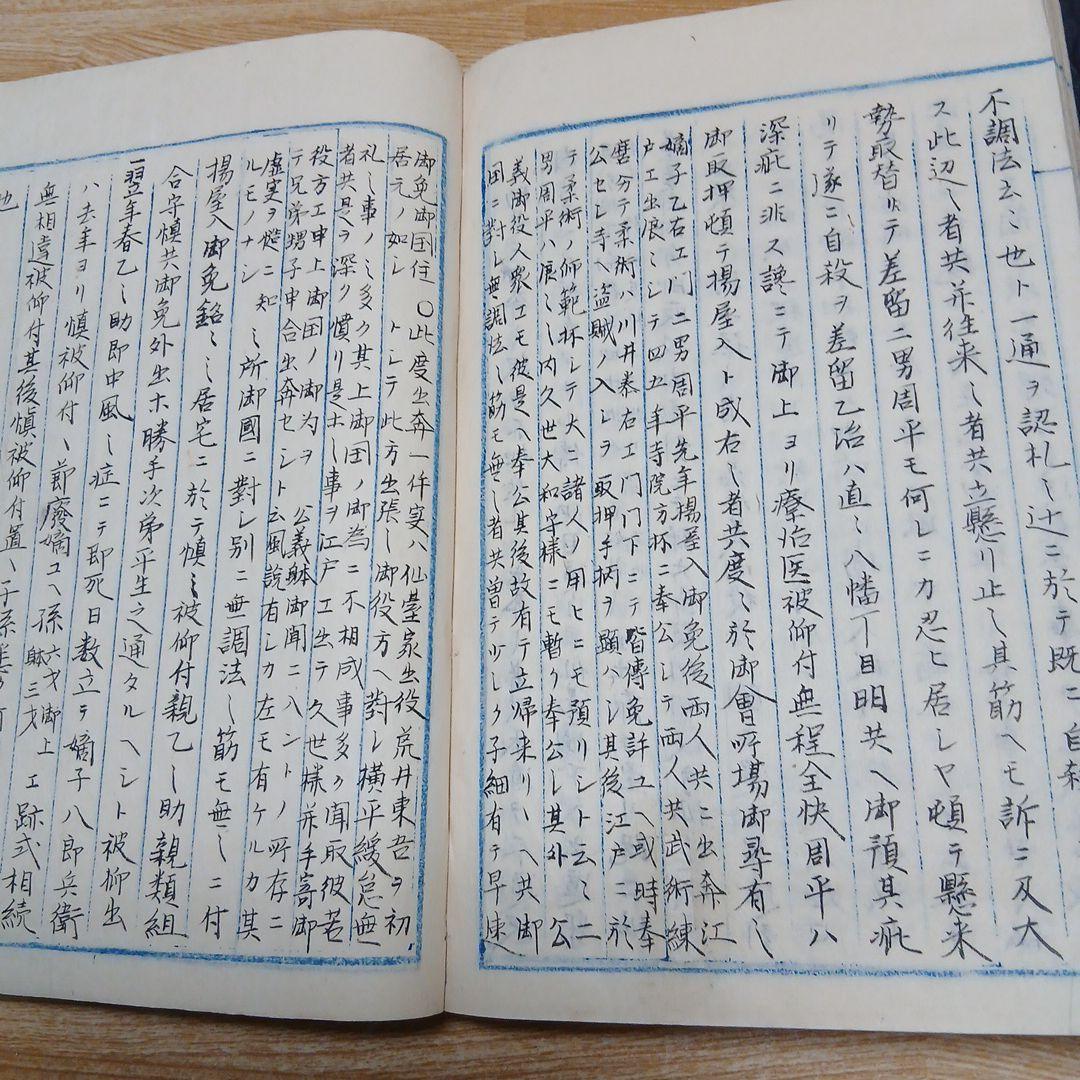 不調法云々也ト一通ヲ認札之辻ニ於テ既ニ自
ス此辺之者共并往来之者共立懸リ止之其筋ヘモ訴ニ及大
勢取替リテ差留二男周平モ何レニカ忍ヒ居シヤ頓テ懸来
リテ遂ニ自殺ヲ差留乙治ハ直ニ八幡丁目明共ヘ御預其疵
深疵ニ非ス讒ニテ御上ヨリ療治医被仰付無程全快周平ハ
御取押頓テ揚屋入ト成右之者共度之於御會所場御尋有之
嫡子乙右エ門二男周平先年揚屋入御免後両人共ニ出奔江
戸エ出浪ニシテ四五年寺院方抔ニ奉公シテ両人共武術練
磨分テ柔術ハ川井恭右エ門門下ニテ皆傳免許ユヘ或時奉
公セシ寺ヘ盗賊ノ入シヲ取押手柄ヲ顕ハシ其後江戸ニ於
テ柔術ノ師範抔シテ大ニ諸人ノ用ヒニモ預リシト云々二
男周平ハ浪之内久世大和守様ニモ暫ク奉公シ其外公
義御役人衆エモ彼是ヘ奉公其後故有テ立帰来リヘ共御
田ニ對シ無調法之筋モ無之者共曽テツシク子細有テ早速
御免御国住〇此度出奔一件実ハ仙臺家出役荒井東吾ヲ初
居元ノ如シトシテ此方出張之御役方ヘ對シ横平緩怠無
礼之事ノミ多ク其上御国ノ御為ニ不相成事多ク聞取彼若
者共是ヲ深ク憤リ是ホ之事ヲ江戸エ出テ久世様并手寄御
役方エ申上御国ノ御為ヲ公義躰御聞ニ入ントノ所存ニ
テ兄弟甥子申合出奔セシト云風説有シカ左モ有ケルカ其
虚実ヲ慥ニ知ルモノナシ之所御國ニ對シ別ニ無調法之筋モ無之ニ付
揚屋入御免銘々居宅ニ於テ慎ミ被仰付親乙之助親類組
合守慎共御免外出ホ勝手次第平生之通タルヘシト被仰出
一翌年春乙之助即中風之症ニテ即死日数立テ嫡子八郎兵衛
ハ去年ヨリ慎被仰付ヽ節廢嫡ユヘ孫六才御上躰三才エ跡式相続
無相違被仰付其後慎被仰付置
也